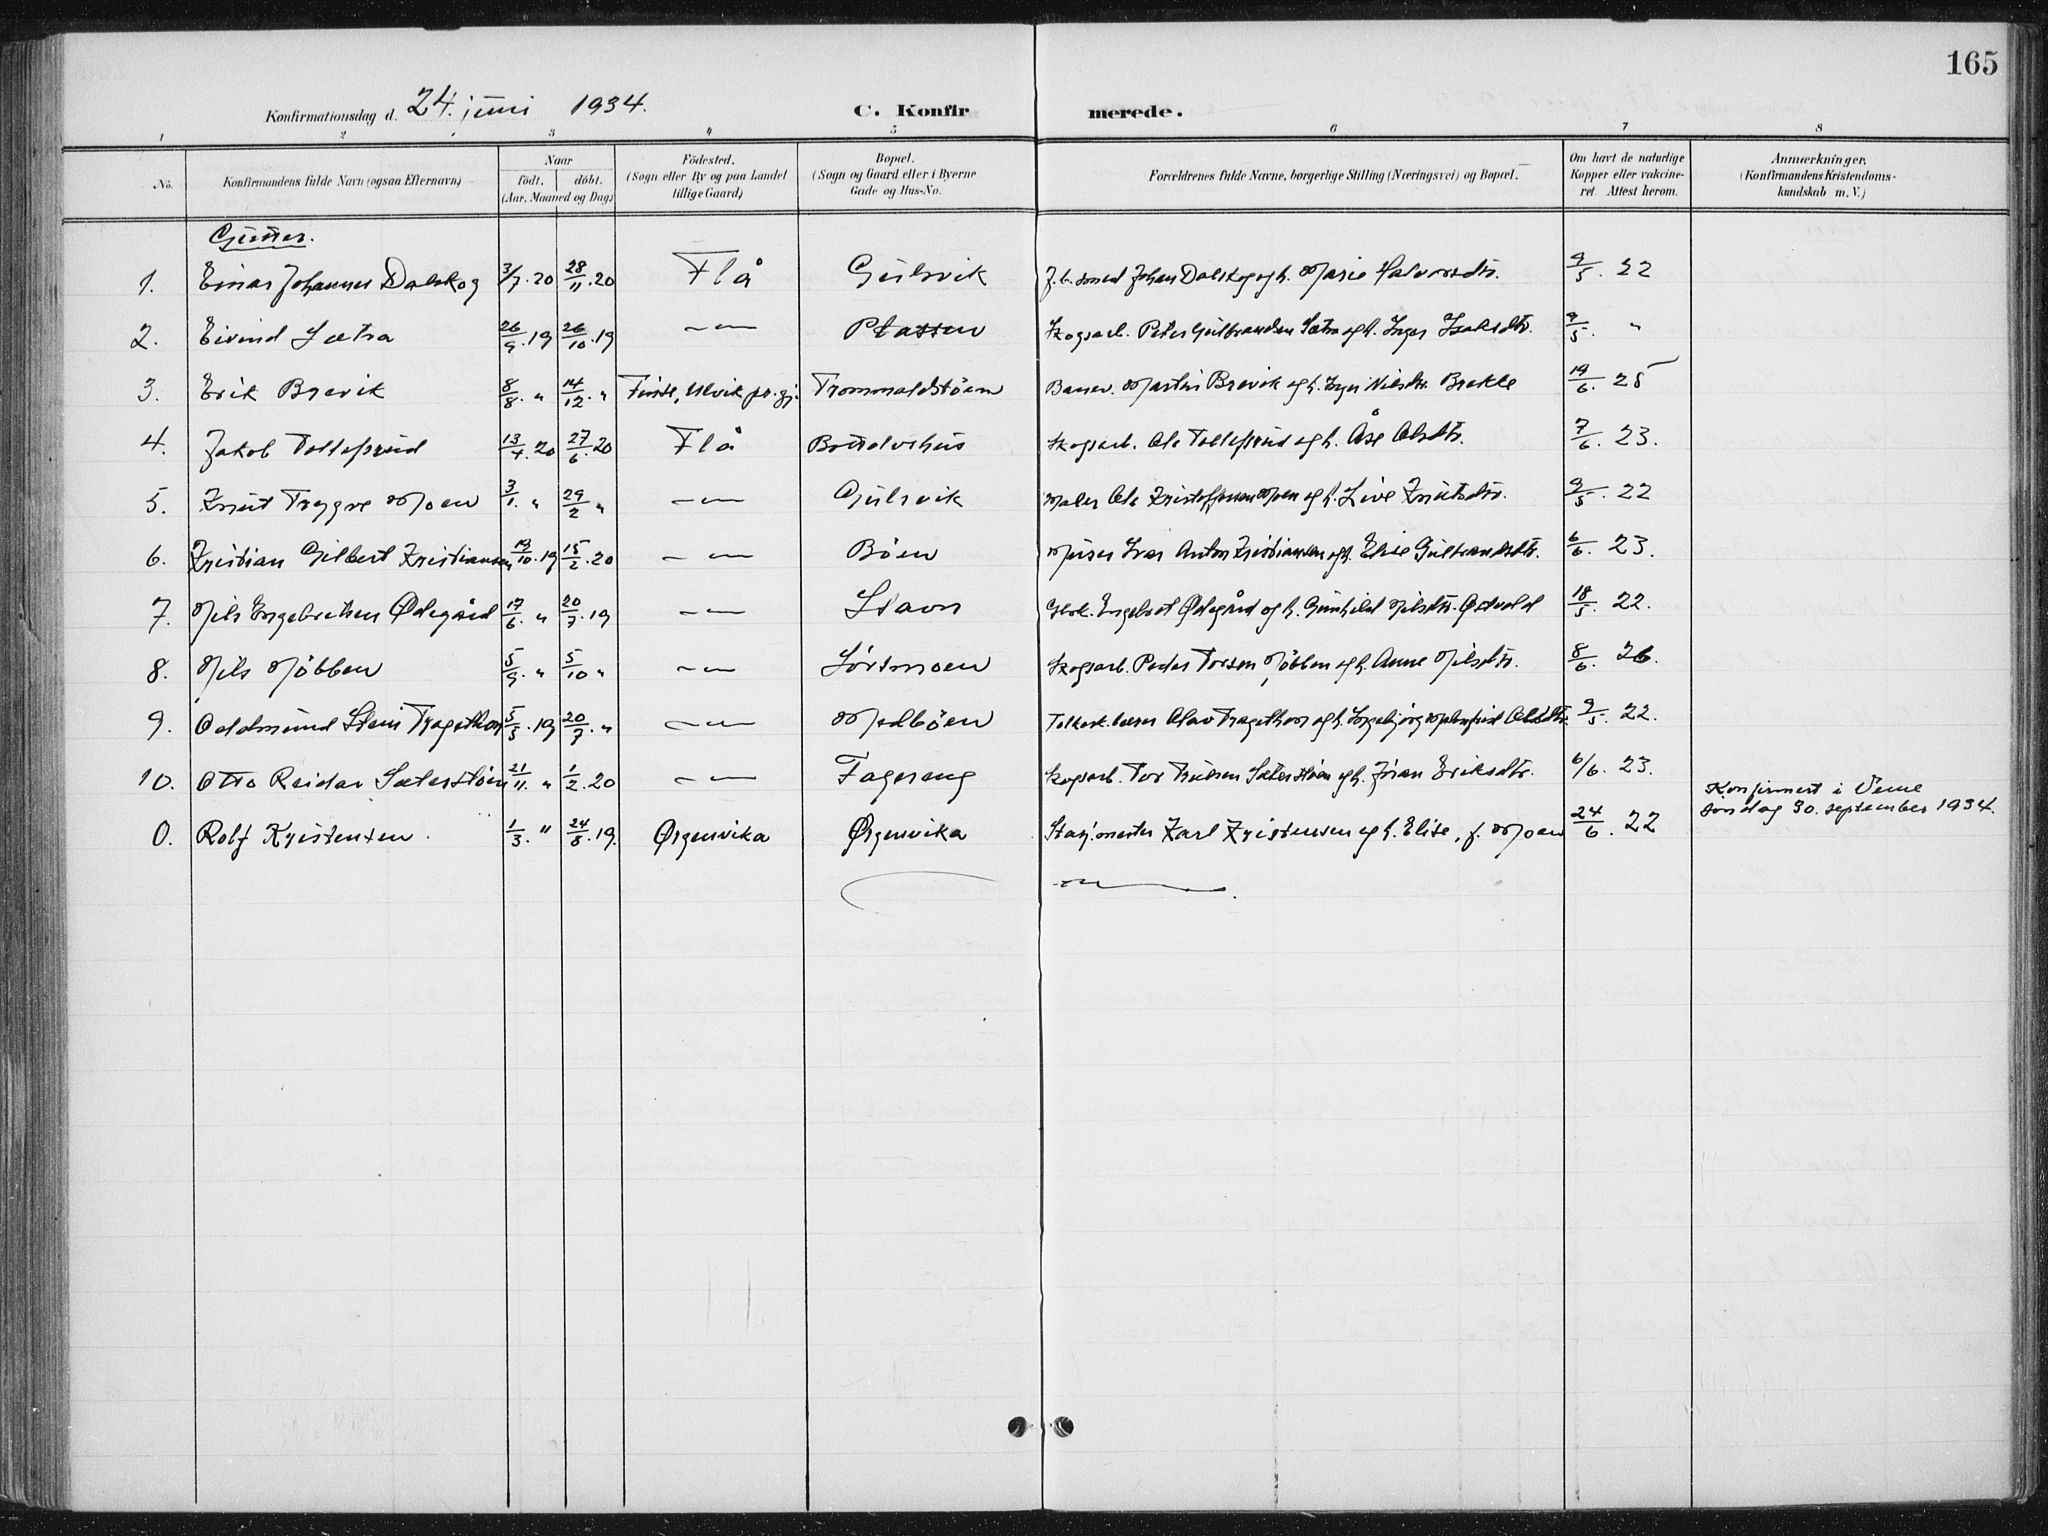 165
Konfirmationsdag d. 24. juni 1934. C. Konfirmerede.
1 2 3 4 5 6 7 8
No. Konfirmandens fulde Navn (ogsaa Efternavn) Naar födt. döbt. (Aar, Maaned og Dag) Födested. (Sogn eller By og paa Landet tillige Gaard) Bopæl. (Sogn og Gaard eller i Byerne Gade og Hus-No. Forældrenes fulde Navne, borgerlige Stilling (Næringsvei) og Bopæl. Om havt de naturlige Kopper eller vakcineret. Attest herom. Anmærkninger. (Konfirmandens Kristendomskundskab m. V.)
Gutter.
1. Einar Johannes Dalskog 3/7.20 28/11.20 Flå Gulsvik J.b. smed Johan Dalskog og h. Marie Halvorsdtr. 9/5. 22
2. Eivind Sætra 26/9.19 26/10.19 -"- Plassen Skogsarb. Peter Gulbrandsen Sætra og h. Inger Isaksdtr. 9/5. "
3. Erik Brevik 8/8. " 14/12. " Finse, Ulvik pr.gj. Trommaldstøen Banev. Martin Brevik og h. Inger Nilsdtr. Brekke 19/6. 25
4. Jakob Tollefsrud 13/4.20 27/6.20 Flå Skogsarb. Ole Tollefsrud og h. Åse Olsdtr. 7/6. 23.
5. Knut Trygve Moen 3/1. " 29/2 " -"- Gulsvik Maler Ole Kristoffersen Moen og h. Live Knutsdtr. 9/5. 22
6. Kristian Gilbert Kristiansen 19/10.19 15/2.20 -"- Bøen Murer Ivar Anton Kristiansen og h. Elise Gulbrandsdtr. 6/6. 23.
7. Nils Engebretsen Ødegård 17/6. " 20/7.19 -"- Stavn Engebret Ødegård og h. Gunhild Nilsdtr. 18/5. 22.
8. Nils Møbben 5/9. " 5/10 " -"- Sørsmoen Skogsarb. Peder Torsen Møbben og h. Anne Nilsdtr. 8/6. 26.
9. Oddmund Stein Tragethon 5/5.19 20/7. " -"- Medbøen Folkesk.lærer Olav Tragethon og h. Ingebjørg Olsdtr. 9/5. 22.
10. Otto Reidar Sæterstøen 21/11. " 1/2.20 -"- Fagereng Skogsarb. Tor Truesen Sæterstøen og h. Jøran Eriksdtr. 6/6. 23.
0. Rolf Kristensen. 1/3. " 24/8.19. Ørgenvika Ørgenvika Stasj.mester Karl Kristensen og h. Elise, f. Moen 24/6. 22 Konfirmert i Veme søndag 30. september 1934.